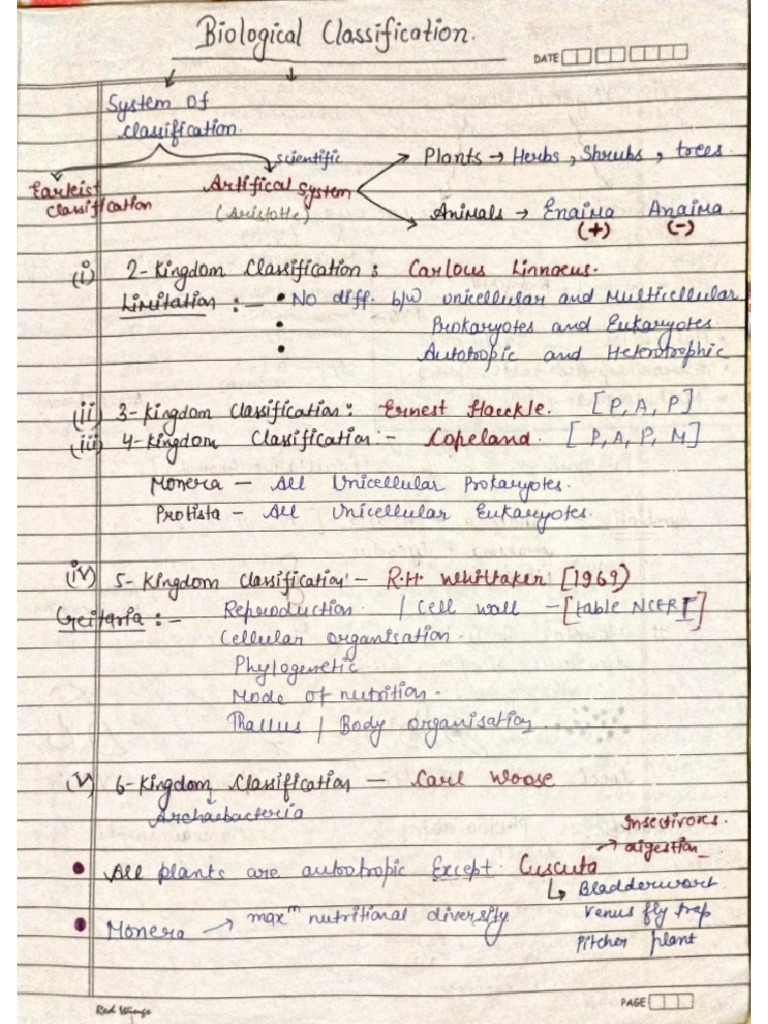 Biological Classification.
DATE
System of
classification.
scientific
Plants → Herbs, Shrubs, trees.
Earleist
classification
Artifical System
(Aristotle)
Animals → Enaima Anaima.
(+) (-)
(i) 2-Kingdom Classification : Carlous Linnaeus.
Limitation :- • No diff. b/w unicellular and Multicellular
• Prokaryotes and Eukaryotes.
• Autotropic and Heterotrophic
(ii) 3-Kingdom Classification : Ernest Haeckle. [P, A, P]
(iii) 4-Kingdom Classification :- Copeland. [P, A, P, M]
Monera - All Unicellular Prokaryotes.
Protista - All Unicellular Eukaryotes.
(iv) 5-Kingdom Classification - R.H. Whittaker [1969)
Criteria :- Reproduction. / Cell wall - [table NCERT]
Cellular organisation.
Phylogenetic
Mode of nutrition.
Thallus / Body organisation.
(v) 6-Kingdom Classification - Carl Woose
Archaebacteria
Insectivores.
→ digestion
• All plants are autotropic Except. Cuscuta
↳ Bladderwort
Venus fly trap
Pitcher plant
• Monera → maxᵐ nutritional diversity
Red Wings
PAGE